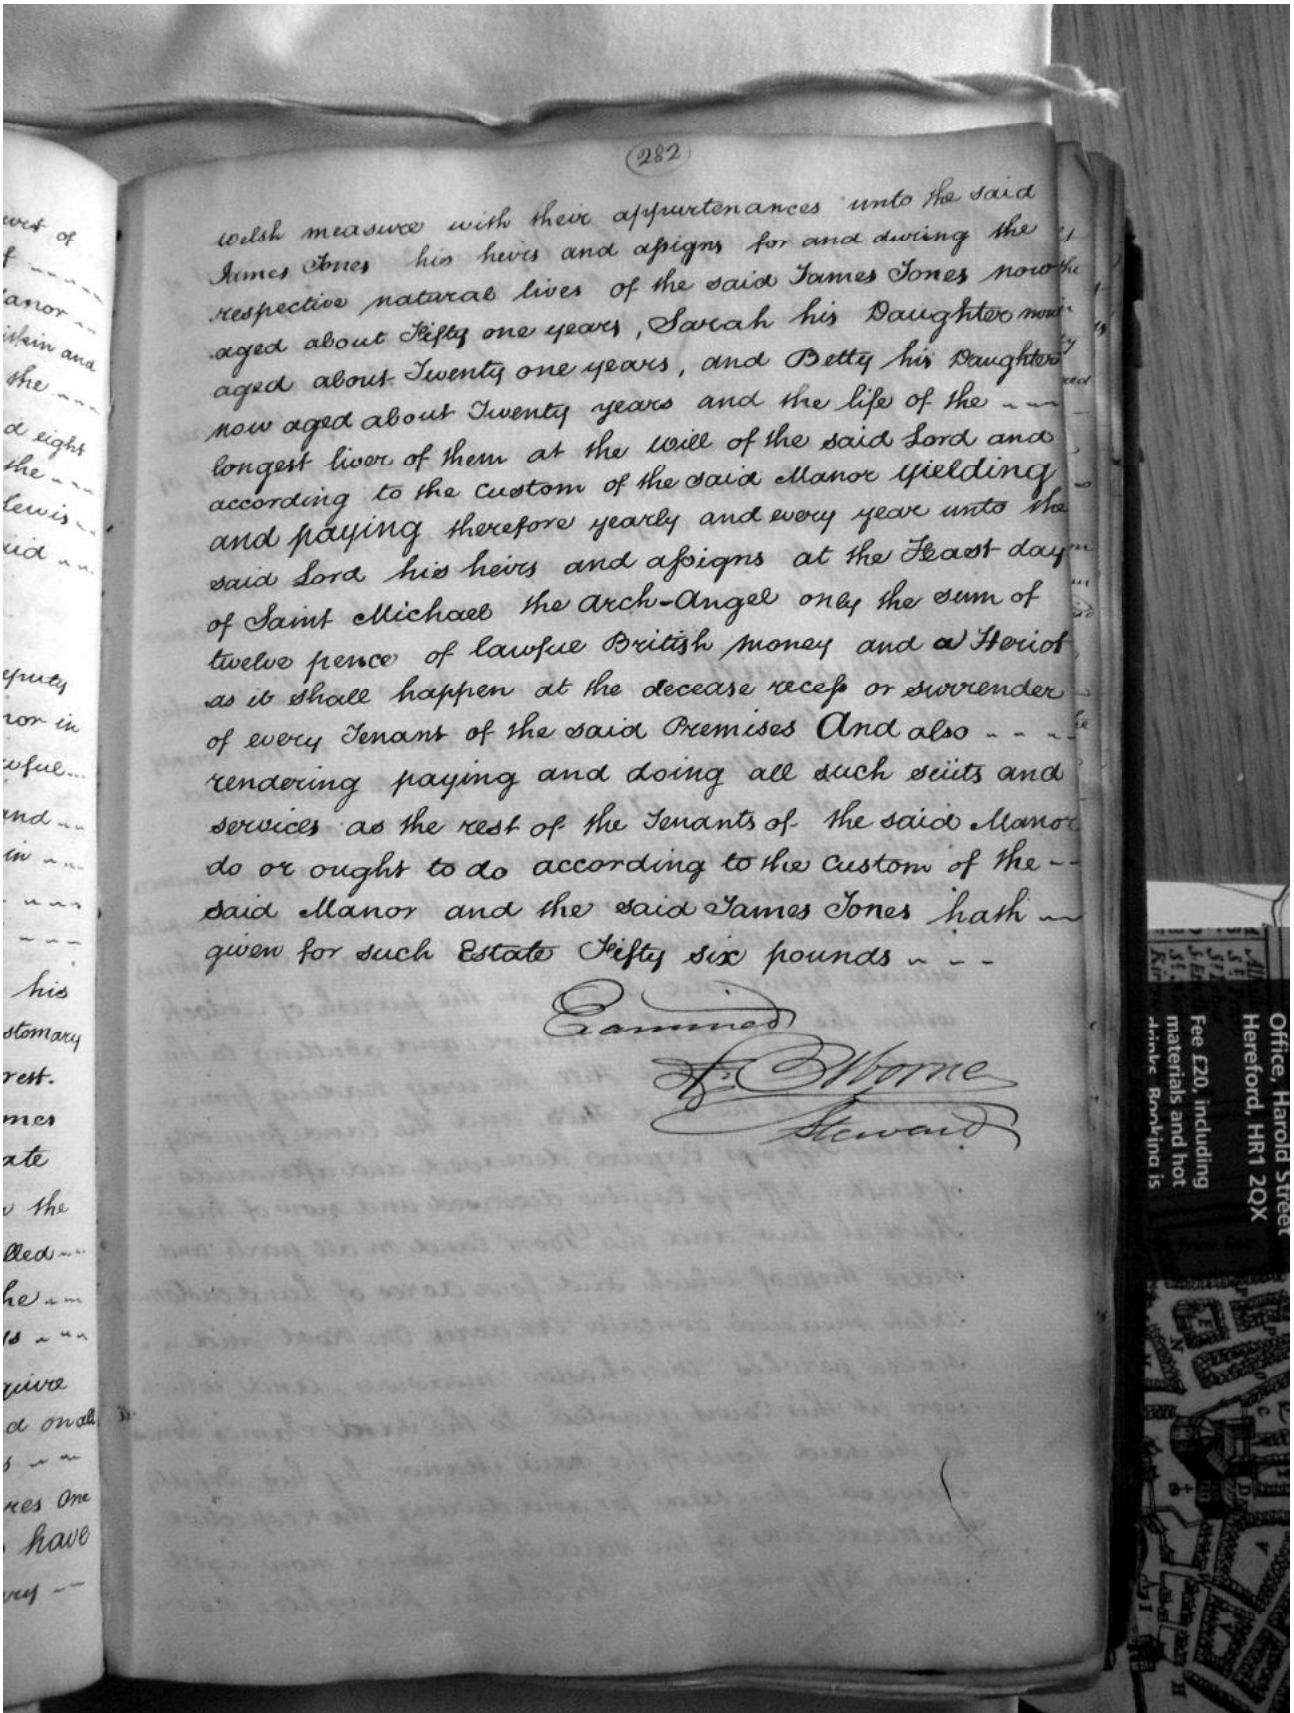 282
welsh measure with their appurtenances unto the said
James Jones his heirs and assigns for and during the
respective natural lives of the said James Jones now
aged about Fifty one years, Sarah his Daughter now
aged about Twenty one years, and Betty his Daughter
now aged about Twenty years and the life of the
longest liver of them at the will of the said Lord and
according to the Custom of the said Manor yielding
and paying therefore yearly and every year unto the
said Lord his heirs and assigns at the Feast day
of Saint Michael the Arch-Angel only the sum of
twelve pence of lawful British money and a Heriot
as it shall happen at the decease recess or surrender
of every Tenant of the said Premises And also - - -
rendering paying and doing all such suits and
services as the rest of the Tenants of the said Manor
do or ought to do according to the Custom of the --
said Manor and the said James Jones hath
given for such Estate Fifty six pounds - - -
Examined
Osborne
Steward
anor
and
the
d eight
the
Lewis
his
stomary
rest.
mes
ate
the
lled
quire
d on all
res One
have
Office, Harold Street
Hereford, HR1 2QX
Fee £20, including
materials and hot
drinks. Booking is